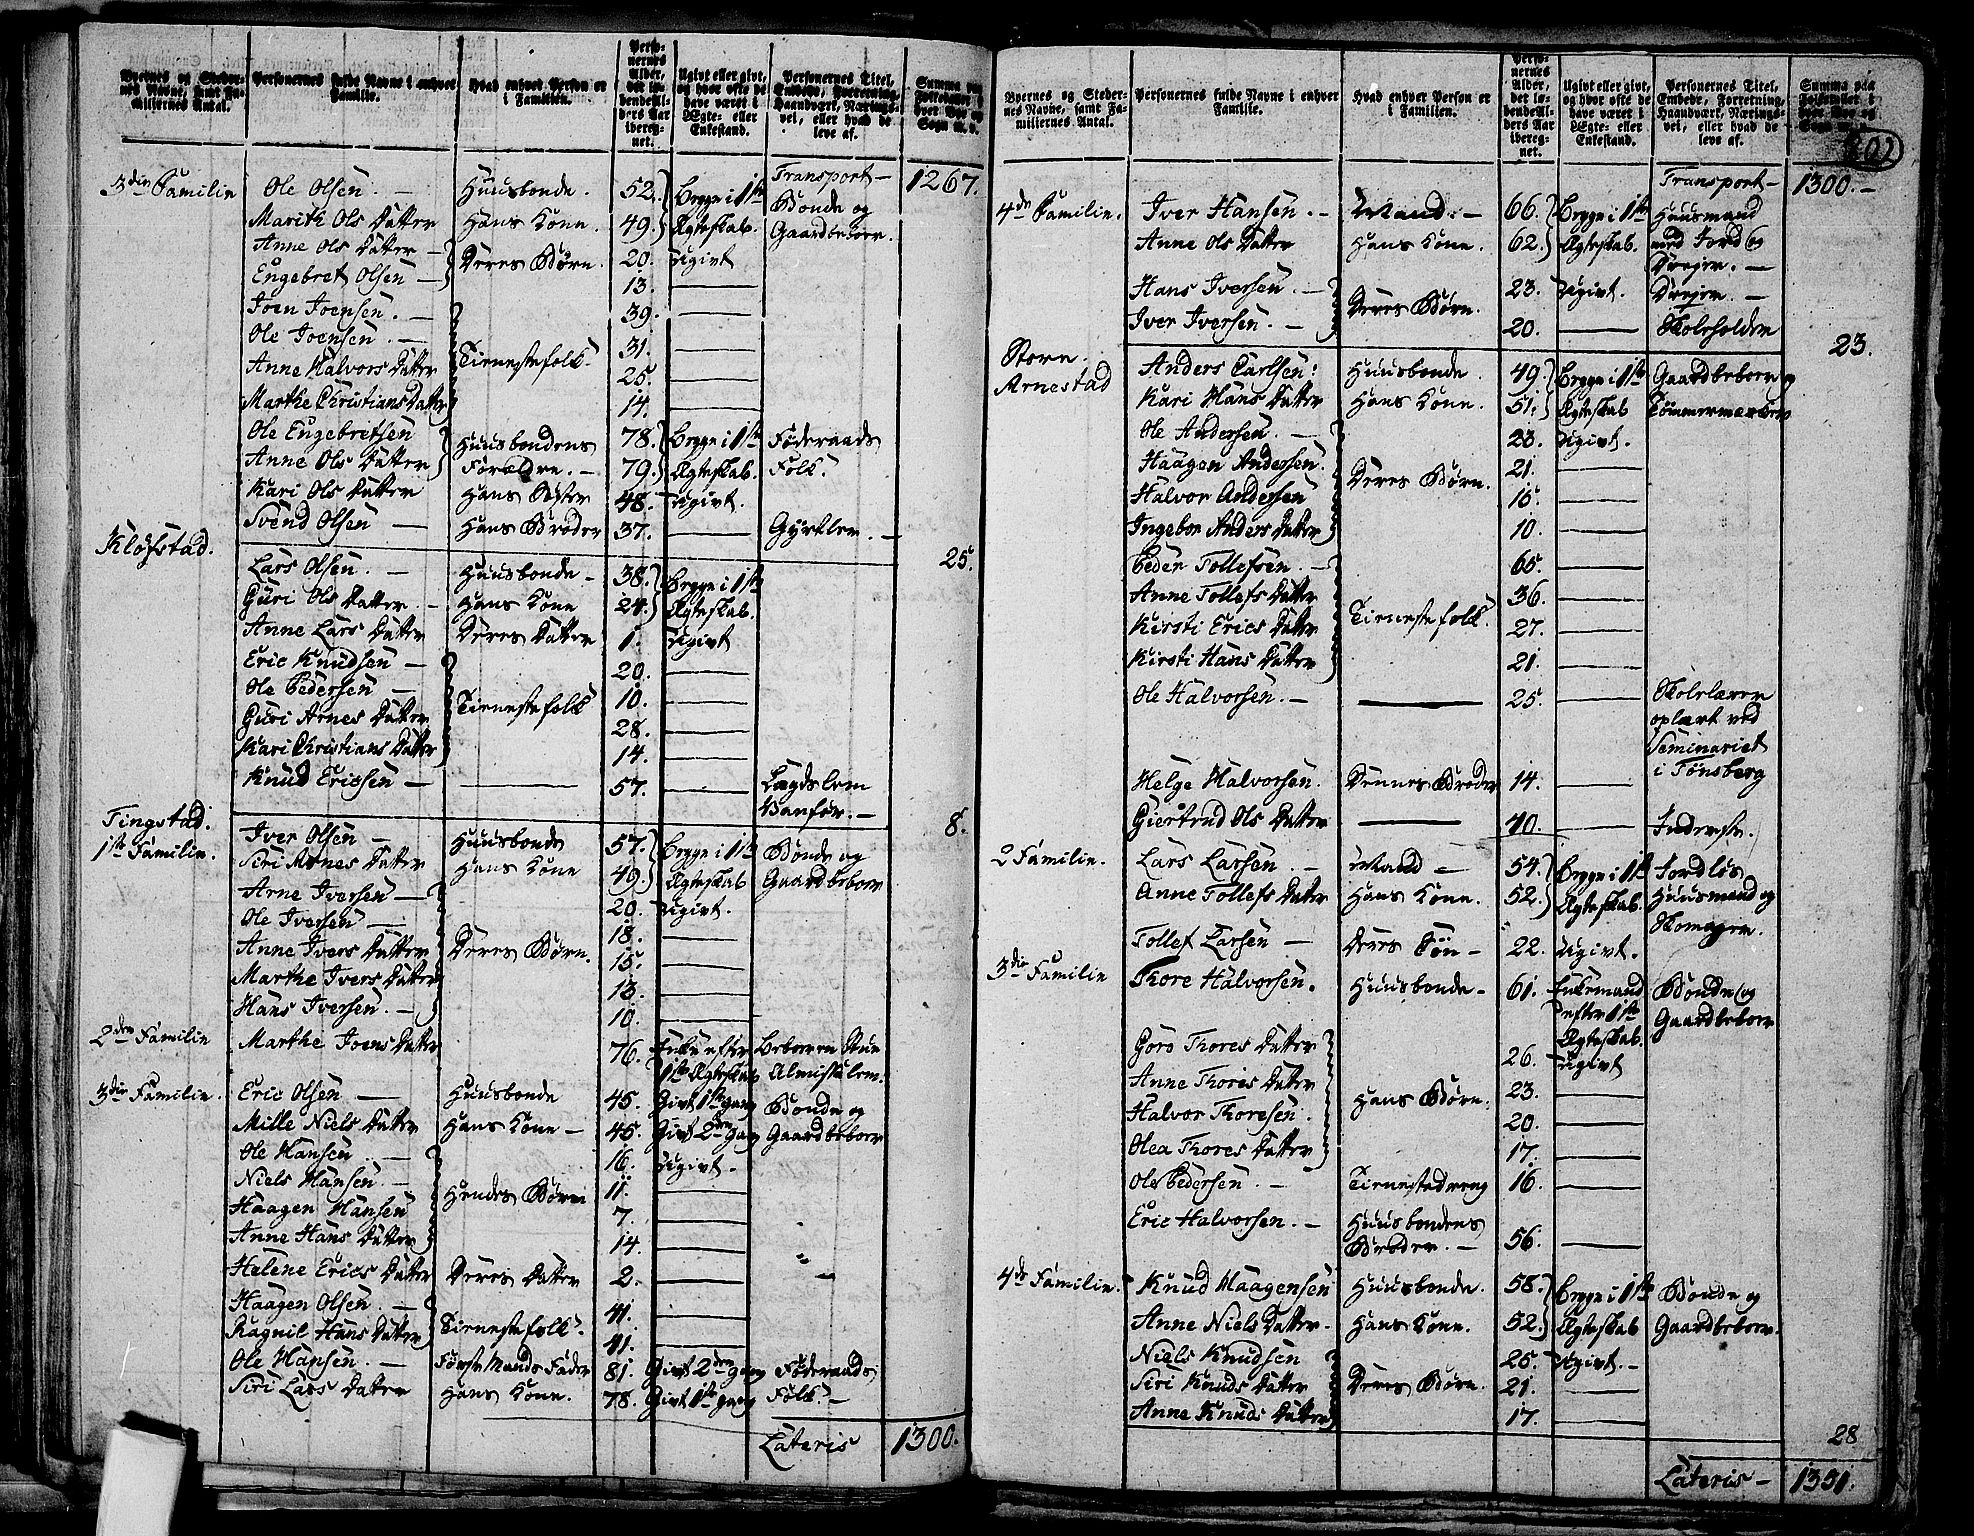 Byernes og Steder-
nes Navne, samt Fa-
miliernes Antal.
Personernes fulde Navne i enhver
Familie.
Hvad enhver Person er
i Familien.
Perso-
nernes
Alder,
det lø-
bende Al-
ders Aar
ibereg-
net.
Ugivt eller givt,
og hvor ofte de
have været i
Ægte- eller
Enkestand.
Personernes Titel,
Embede, Forretning,
Haandværk, Nærings-
vei, eller hvad de
leve af.
Summa paa
Folketallet i
hver Bye og
Sogn m. v.
Transport — 1267.
3die Familie Ole Olsen. — Huusbonde. 52. Begge i 1ste Bonde og
Marith Ols Datter Hans Kone. 49. Ægteskab. Gaardbeboer.
Anne Ols Datter — Deres Børn. 20. Ugivt
Engebret Olsen — 13. —
Joen Joensen. — 39. —
Ole Joensen. — 31. —
Anne Halvors Datter Tienestefolk. 25. —
Marthe Christians Datter 14. —
Ole Engebretsen Huusbondens 78. Begge i 1ste Føderaads
Anne Ols Datter Forældre. — 79. Ægteskab. Folk.
Kari Ols Datter Hans Søster 48. Ugivt.
Svend Olsen — Hans Broder 37. — Gyrtler. —
25.
Kløfstad.
Lars Olsen. — Huusbonde — 38. Begge i 1ste
Guri Ols Datter. — Hans Kone 24. Ægteskab.
Anne Lars Datter Deres Datter 1. Ugivt
Eric Knudsen — 20. —
Ole Pedersen — Tienestefolk 10. —
Guri Arnes Datter 28. —
Kari Christians Datter 14. —
Knud Ericsen — — 57. — Lægdslem
Vanfør. —
8.
Tingstad.
1ste Familie. Iver Olsen — Huusbonde 57. Begge i 1ste Bonde og
Siri Arnes Datter Hans Kone 49. Ægteskab Gaardbeboer
Arne Iversen — 20. Ugivt.
Ole Iversen — 18. —
Anne Ivers Datter Deres Børn. 15. —
Marthe Ivers Datter 13. —
Hans Iversen. — 10. —
2den Familie Marthe Joens Datter 76. Enke efter Beboer en Stue
1ste Ægteskab Almisselem.
3die Familie. Eric Olsen — Huusbonde 45. Givt 1ste gang Bonde og
Mille Niels Datter Hans Kone — 45. Givt 2den Gang Gaardbeboer
Ole Hansen — 16. Ugivt.
Niels Hansen. — Hendes Børn 11. —
Haagen Hansen 7. —
Anne Hans Datter 14. —
Helene Erics Datter Deres Datter 2. —
Haagen Olsen. — Tienestefolk. 41. —
Ragnil Hans Datter 41. —
Ole Hansen. — Første Mands Fader 81. Givt 2den gang Føderaads
Siri Lars Datter Hans Kone. 78. Givt 1ste gang Folk. —
Lateris 1300.
Byernes og Steder-
nes Navne, samt Fa-
miliernes Antal.
Personernes fulde Navne i enhver
Familie.
Hvad enhver Person er
i Familien.
Perso-
nernes
Alder,
det lø-
bende Al-
ders Aar
ibereg-
net.
Ugivt eller givt,
og hvor ofte de
have været i
Ægte- eller
Enkestand.
Personernes Titel,
Embede, Forretning,
Haandværk, Nærings-
vei, eller hvad de
leve af.
Summa paa
Folketallet i
hver Bye og
Sogn
202
Transport — 1300. —
4de Familie. Iver Hansen. — Mand. — 66. Begge i 1ste Huusmand
Anne Ols Datter Hans Kone. 62. Ægteskab. med Jord og
Drejer. —
Hans Iversen. — Deres Børn. 23. Ugivt. Drejer. —
Iver Iversen. — 20. — Skoleholder
23.
Store
Arnestad
Anders Carlsen. Huusbonde. 49. Begge i 1ste Gaardbeboer og
Kari Hans Datter Hans Kone. 51. Ægteskab Tømmermærker
Ole Andersen. — 23. Ugivt.
Haagen Andersen. Deres Børn. 21. —
Halvor Andersen 15. —
Ingebor Anders Datter 10. —
Peder Tollefsen. — 65. —
Anne Tollefs Datter Tienestefolk. 36. —
Kirsti Erics Datter 27. —
Kirsti Hans Datter 21. —
Ole Halvorsen. — — 25. — Skolelærer
oplært ved
Seminariet
i Tønsberg
Helge Halvorsen. Dennes Broder 14. —
Giertrud Ols Datter — 40. — Inderste.
2 Familie. Lars Larsen. — Mand — 54. Begge i 1ste Jordløs
Anne Tollefs Datter Hans Kone. 52. Ægteskab. Huusmand og
Skomager.
Tollef Larsen — Deres Søn — 22. Ugivt.
3die Familie Thore Halvorsen. Huusbonde — 61. Enkemand Bonde og
efter 1ste Gaardbeboer
Ægteskab.
Goro Thores Datter 26. Ugivt
Anne Thores Datter Hans Børn. 23. —
Halvor Thoresen. 20. —
Olea Thores Datter 17. —
Ole Pedersen. — Tienestedreng 16. —
Eric Halvorsen. — Huusbondens
Broder. — 56. —
4de Familie. Knud Haagensen Huusbonde. 58. Begge i 1ste Bonde og
Anne Niels Datter. Hans Kone. 52. Ægteskab Gaardbeboer.
Niels Knudsen 25. Ugivt. —
Siri Knuds Datter Deres Børn. 21. —
Anne Knuds Datter 17. —
28
Lateris — 1351.